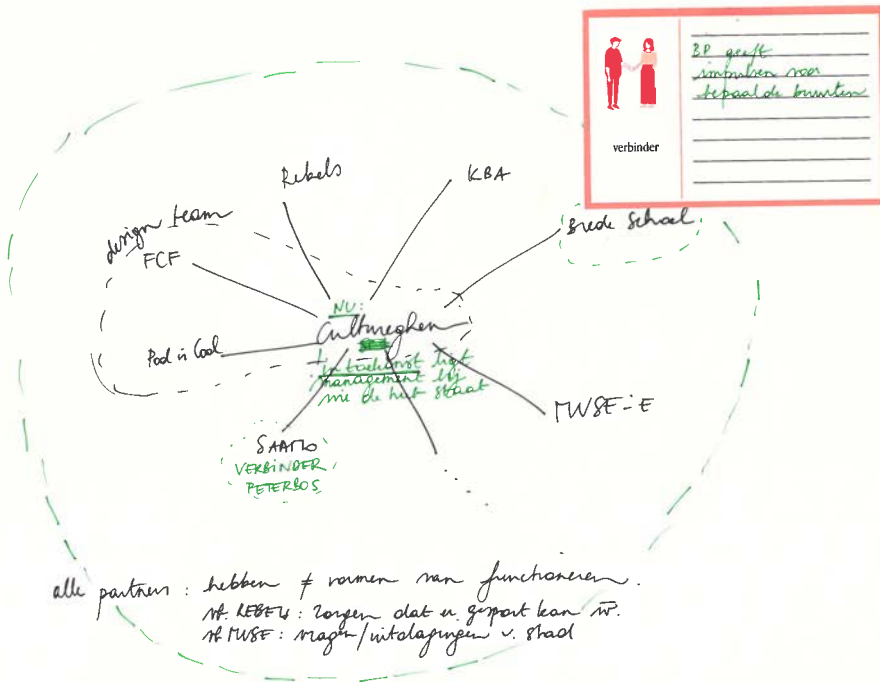 BP geeft
impulsen voor
bepaalde buurten
verbinder
Rebels
KBA
Brede School
design team
FCF
NU:
Cultureghem
Pool is Cool
in toekomst ligt
management bij
wie de hut staat
MUSE-E
SAAMO
VERBINDER
PETERBOS
...
alle partners : hebben ≠ vormen van functioneren.
vb. REBELS : zorgen dat er gesport kan w.
vb MUSE : vragen/uitdagingen v. stad